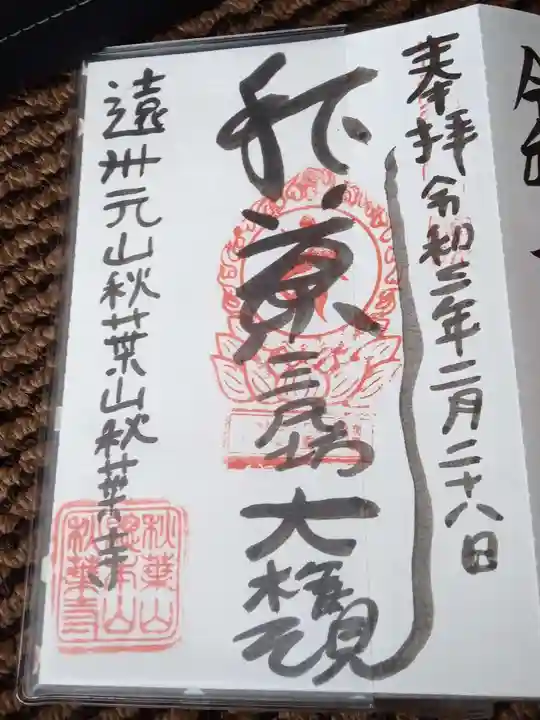 奉拝 令和三年二月二十八日
秋葉三尺坊大権現
遠州元山秋葉山秋葉寺
秋葉山
総本山
秋葉寺